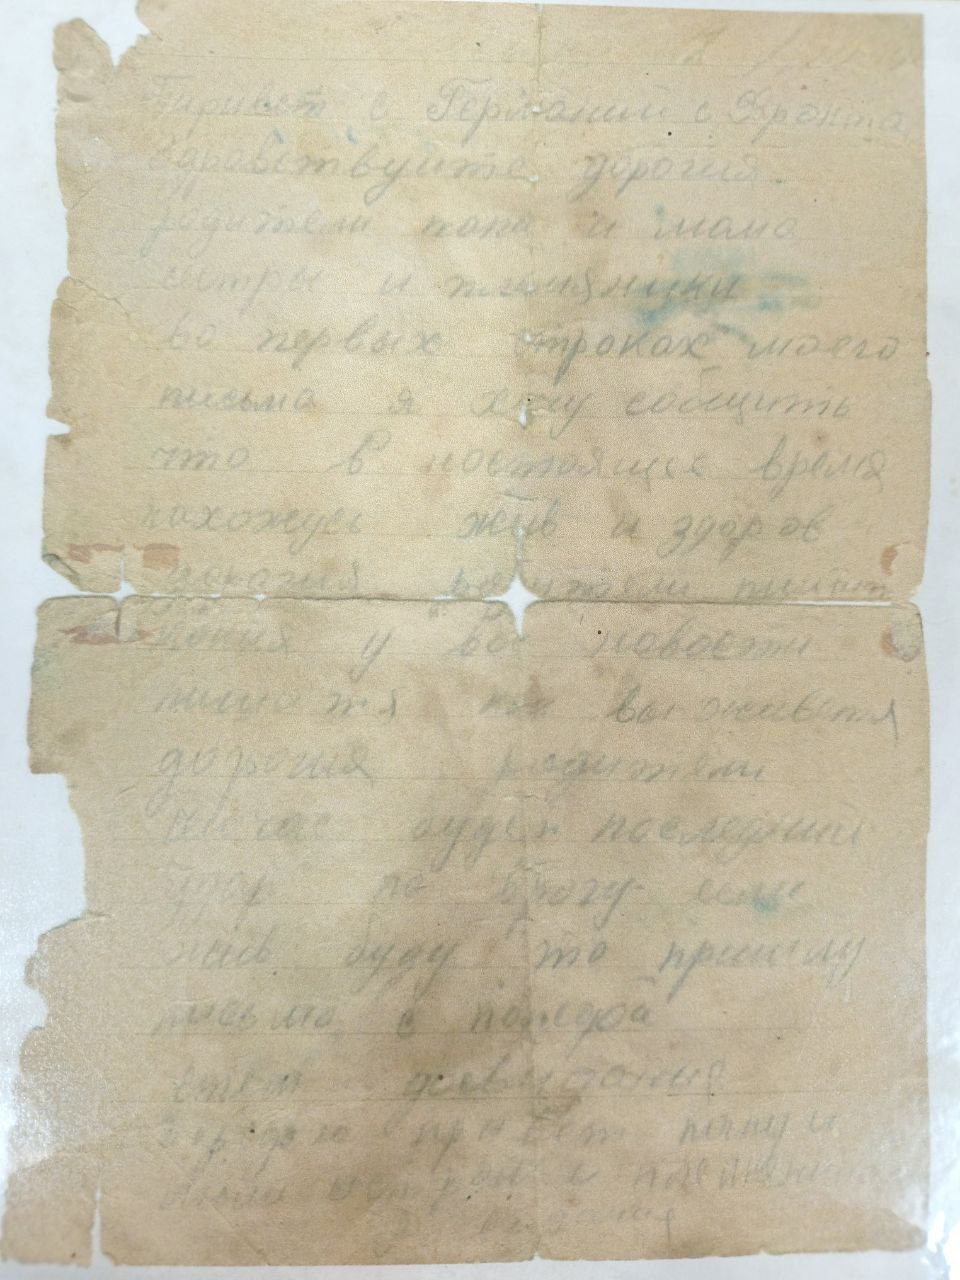 Привет с Германий с Фронта
Здравствуйте дорогия
родители папа и мама
сестры и племяники
во первых строках моего
письма я хочу собщить
что в настоящее время
нахожусь жив и здоров
дорогия родители
у вас новости
как вы живетя
дорогия родители
сичас будет последний
удар по врагу если
жив буду то пришлю
письмо с
ответ досвидания
привет папи и